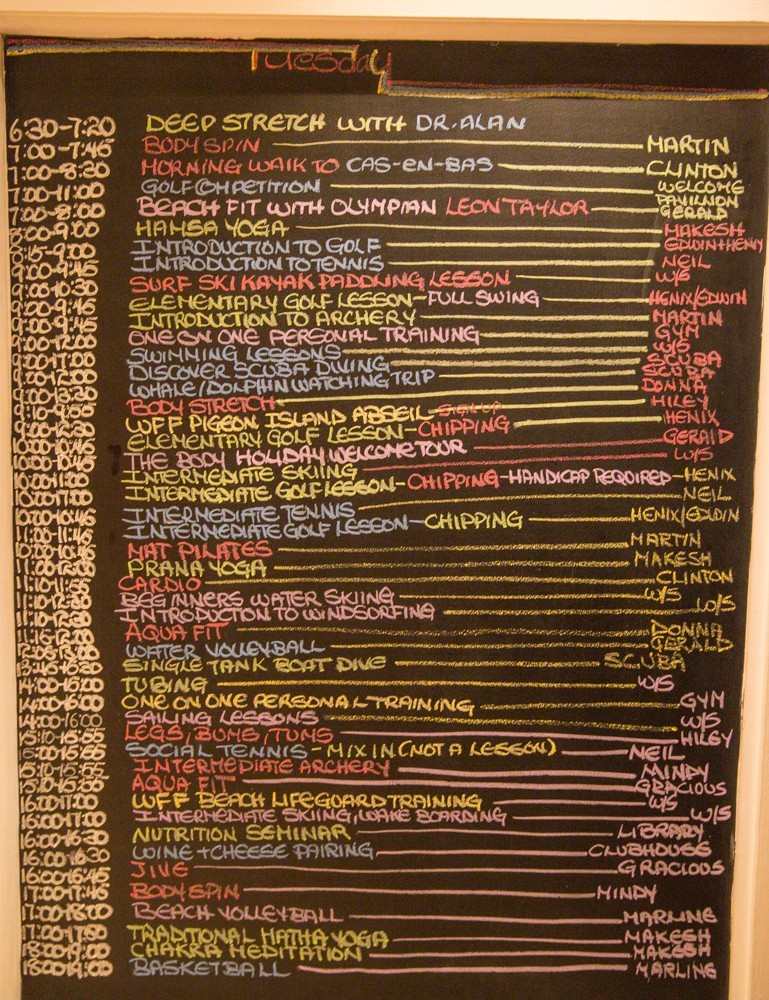 Tuesday
6:30-7:20 DEEP STRETCH WITH DR. ALAN
7:00-7:45 BODY SPIN MARTIN
7:00-8:30 MORNING WALK TO CAS-EN-BAS CLINTON
7:00-11:00 GOLF COMPETITION WELCOME PAVILLION
7:00-8:00 BEACH FIT WITH OLYMPIAN LEON TAYLOR GERALD
8:00-9:00 HAMSA YOGA MAKESH
8:15-9:00 INTRODUCTION TO GOLF EDWIN+HENIX
9:00-9:45 INTRODUCTION TO TENNIS NEIL
9:00-10:30 SURF SKI KAYAK PADDLING LESSON W/S
ELEMENTARY GOLF LESSON-FULL SWING HENIX/EDWIN
9:00-9:45 INTRODUCTION TO ARCHERY MARTIN
ONE ON ONE PERSONAL TRAINING GYM
SWIMMING LESSONS W/S
DISCOVER SCUBA DIVING SCUBA
WHALE/DOLPHIN WATCHING TRIP SCUBA
BODY STRETCH DONNA
WFF PIGEON ISLAND ABSEIL-SIGN UP HILEY
ELEMENTARY GOLF LESSON-CHIPPING HENIX
THE BODY HOLIDAY WELCOME TOUR GERALD
INTERMEDIATE SKIING W/S
INTERMEDIATE GOLF LESSON-CHIPPING-HANDICAP REQUIRED-HENIX
INTERMEDIATE TENNIS NEIL
INTERMEDIATE GOLF LESSON-CHIPPING HENIX/EDWIN
MAT PILATES MARTIN
PRANA YOGA MAKESH
CARDIO CLINTON
BEGINNERS WATER SKIING W/S
INTRODUCTION TO WINDSORFING W/S
AQUA FIT DONNA
WATER VOLLEYBALL GERALD
SINGLE TANK BOAT DIVE SCUBA
TUBING W/S
ONE ON ONE PERSONAL TRAINING GYM
14:00-16:00 SAILING LESSONS W/S
LEGS, BUMS, TUMS HILEY
SOCIAL TENNIS-MIX IN (NOT A LESSON) NEIL
INTERMEDIATE ARCHERY MINDY
AQUA FIT GRACIOUS
16:00-17:00 WFF BEACH LIFEGUARD TRAINING W/S
INTERMEDIATE SKIING, WAKE BOARDING W/S
16:00-16:30 NUTRITION SEMINAR LIBRARY
WINE + CHEESE PAIRING CLUBHOUSE
16:00-16:45 JIVE GRACIOUS
17:00-17:45 BODY SPIN MINDY
17:00-18:00 BEACH VOLLEYBALL MARLINE
TRADITIONAL HATHA YOGA MAKESH
18:00-19:00 CHAKRA MEDITATION MAKESH
18:00-19:00 BASKETBALL MARLINE